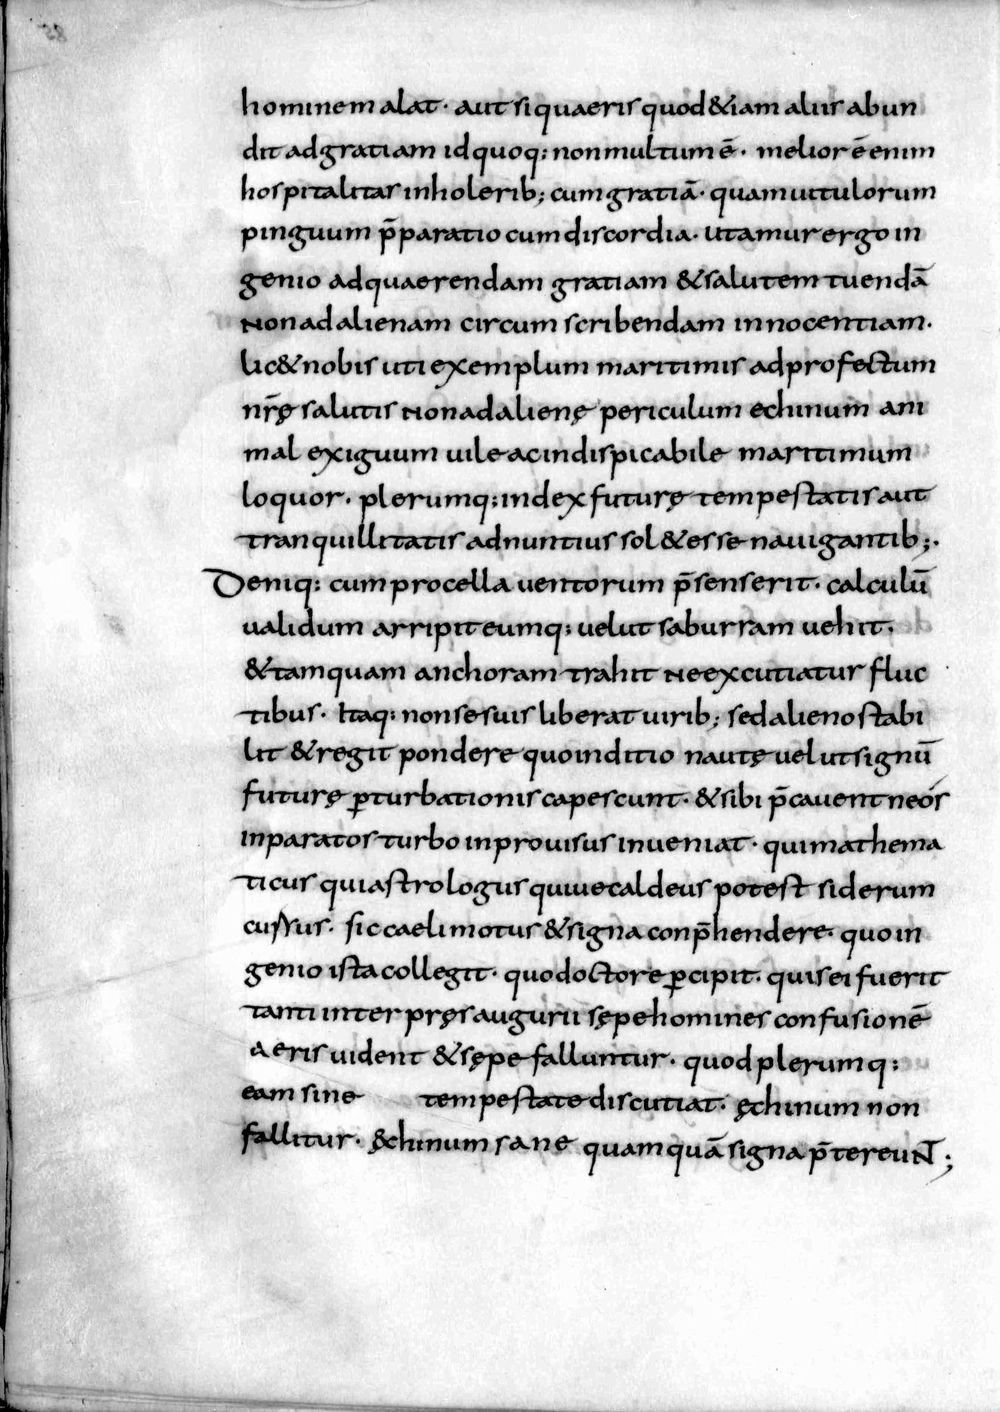 hominem alat· aut si quaeris quod &iam aliis abun
dit ad gratiam id quoq: non multum ē· melior ē enim
hospitalitas in holerib; cum gratiā· quam uitulorum
pinguium p̄paratio cum discordia· utamur ergo in
genio ad quaerendam gratiam & salutem tuendā
Non ad alienam circum scribendam innocentiam·
lic& nobis uti exemplum maritimis ad profectum
nr̄ę salutis Non ad alienę periculum echinum ani
mal exiguum uile ac indispicabile maritimum
loquor· plerumq: index futurę tempestatis aut
tranquillitatis adnuntius sol& esse nauigantib;·
Deniq: cum procella uentorum p̄senserit· calculū
ualidum arripit eumq: uelut saburram uehit·
& tamquam anchoram trahit Ne excutiatur fluc
tibus· Itaq: non se suis liberat uirib; sed alieno stabi
lit & regit pondere quo inditio nautę uelut signū
futurę ꝑturbationis capescunt· & sibi p̄cauent ne eós
inparatos turbo inprouisus inueniat· qui mathema
ticus qui astrologus quiue caldeus potest siderum
cussus· sic caeli motus & signa conp̄hendere· quo in
genio ista collegit· quo doctore ꝑcipit· quis ei fuerit
tanti inter pręs augurii sępe homines confusionē
aeris uident & sępe falluntur· quod plerumq:
eam sine tempestate discutiat· ęchinum non
fallitur· ęchinum sane quam quā signa p̄tereuNT;